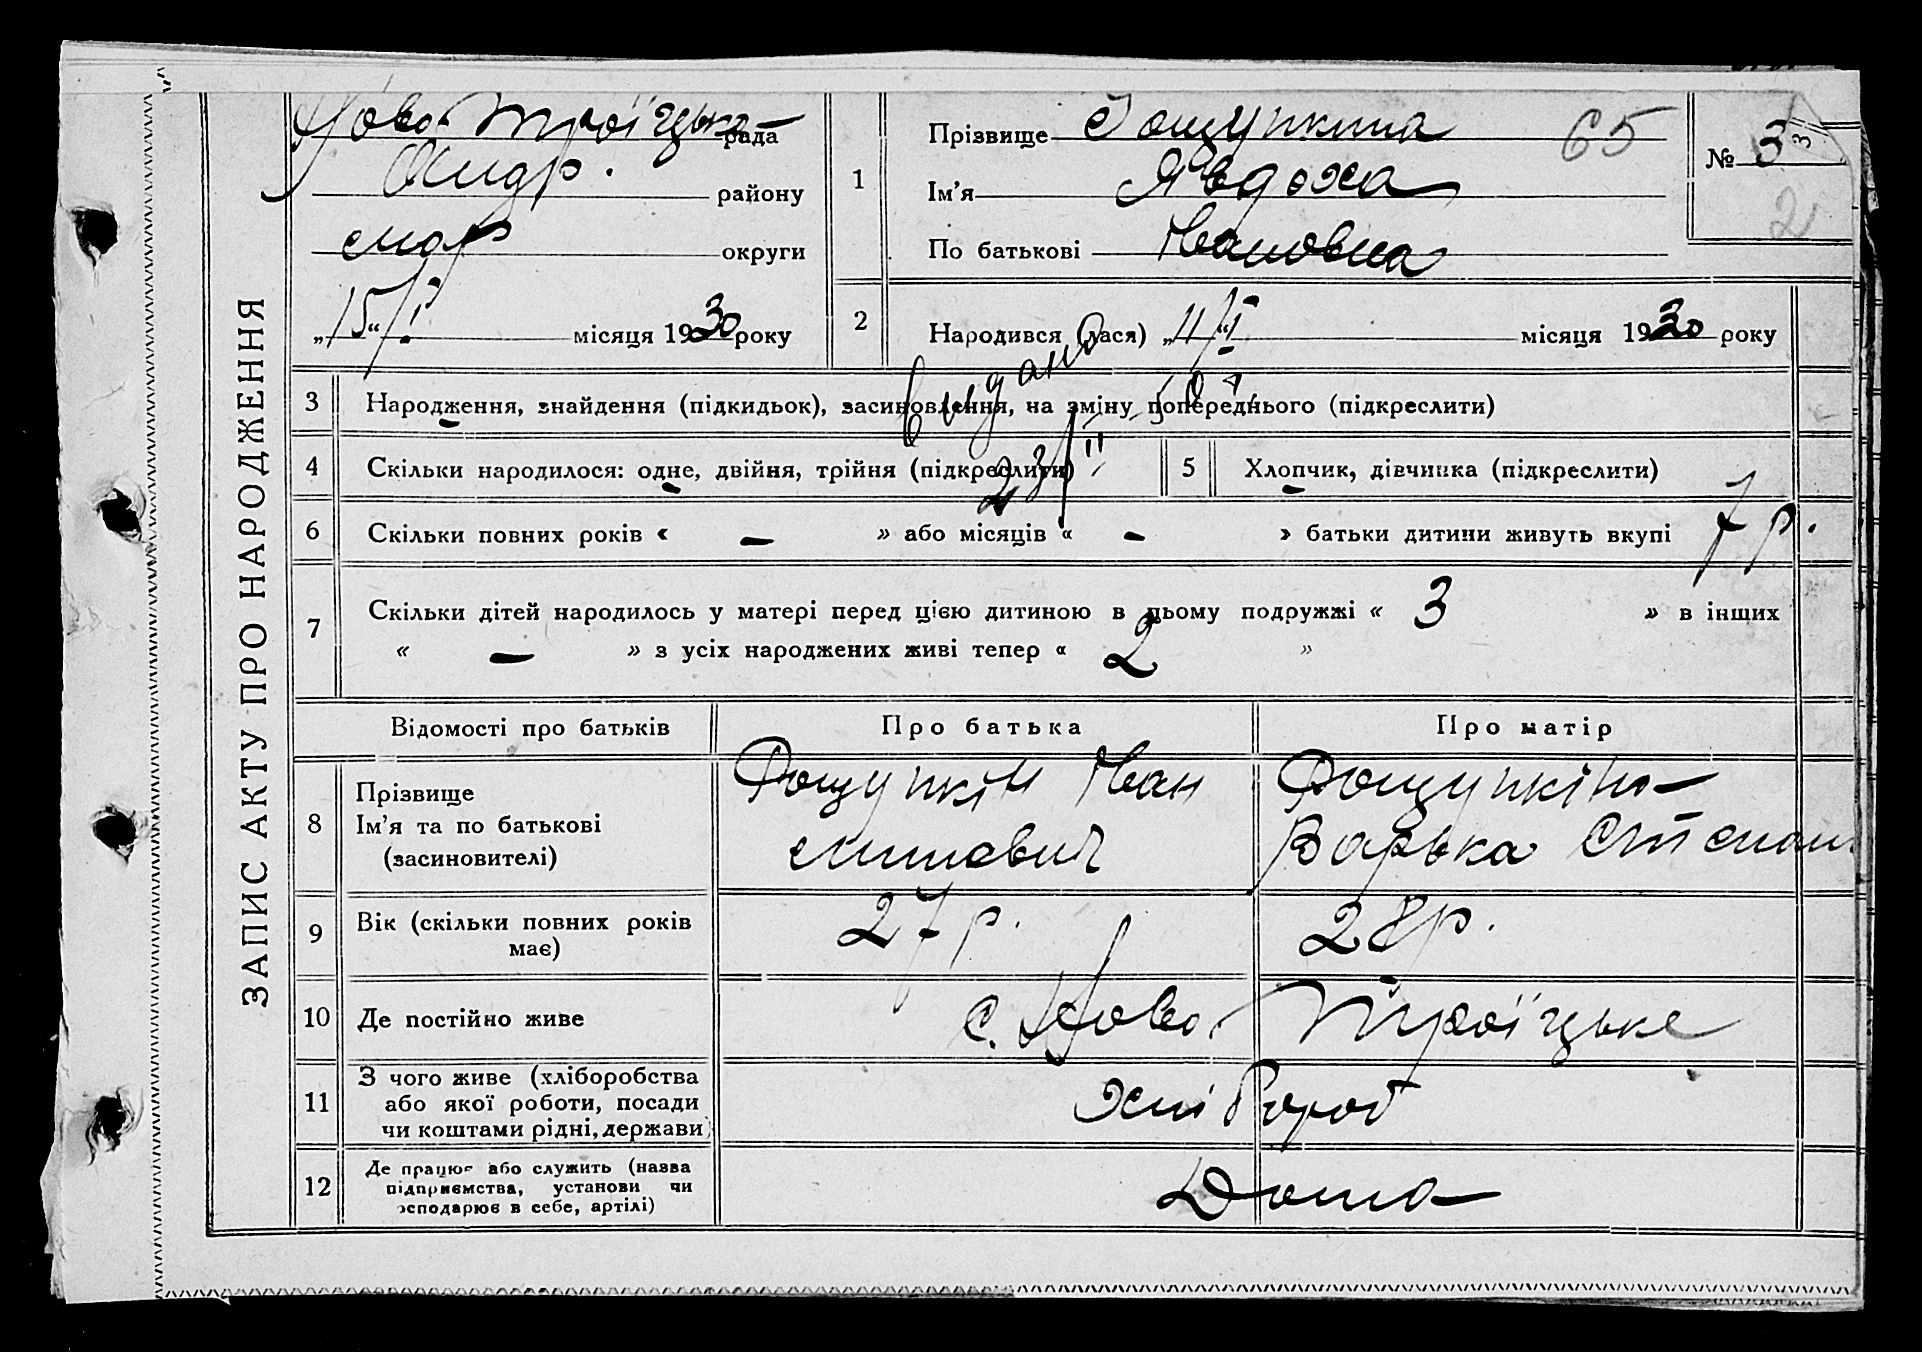 ЗАПИС АКТУ ПРО НАРОДЖЕННЯ
Ново Троїцька рада
району
округи
„15“/I місяця 1930 року
1
Прізвище
65
Ім'я Явдоха
По батькові Ивановна
№ 3
3
2
2
Народився (лася) „11“/I місяця 1930 року
3 Народження, знайдення (підкидьок), засиновлення, на зміну попереднього (підкреслити)
видано
4 Скільки народилося: одне, двійня, трійня (підкреслити)
23/II
5 Хлопчик, дівчинка (підкреслити)
6 Скільки повних років « – » або місяців « – » батьки дитини живуть вкупі 7 р.
7 Скільки дітей народилось у матері перед цією дитиною в цьому подружжі « 3 » в інших
« – » з усіх народжених живі тепер « 2 »
Відомості про батьків
Про батька
Про матір
8
Прізвище
Ім'я та по батькові
(засиновителі)
Рощупкін Иван
Рощупкіна
Варька Степан
9
Вік (скільки повних років
має)
27 р.
28 р.
10 Де постійно живе
с. Ново Троїцьке
11
З чого живе (хліборобства
або якої роботи, посади
чи коштами рідні, держави)
Хлібороб
12
Де працює або служить (назва
підприємства, установи чи
господарює в себе, артілі)
Дома